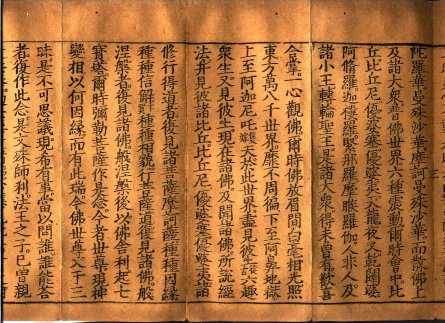 陀羅華曼殊沙華摩訶曼殊沙華而散佛上
及諸大衆普佛世界六種震動爾時會中比
丘比丘尼優婆塞優婆夷天龍夜叉乾闥婆
阿脩羅迦樓羅緊那羅摩睺羅伽人非人及
諸小王轉輪聖王是諸大衆得未曾有歡喜
合掌一心觀佛爾時佛放眉間白毫相光照
東方萬八千世界靡不周徧下至阿鼻地獄
上至阿迦尼吒天於此世界盡見彼土六趣
衆生又見彼土現在諸佛及聞諸佛所說經
法并見彼諸比丘比丘尼優婆塞優婆夷諸
修行得道者復見諸菩薩摩訶薩種種因緣
種種信解種種相貌行菩薩道復見諸佛般
涅槃者復見諸佛般涅槃後以佛舍利起七
寶塔爾時彌勒菩薩作是念今者世尊現神
變相以何因緣而有此瑞今佛世尊入于三
昧是不可思議現希有事當以問誰誰能答
者復作此念是文殊師利法王之子已曾親